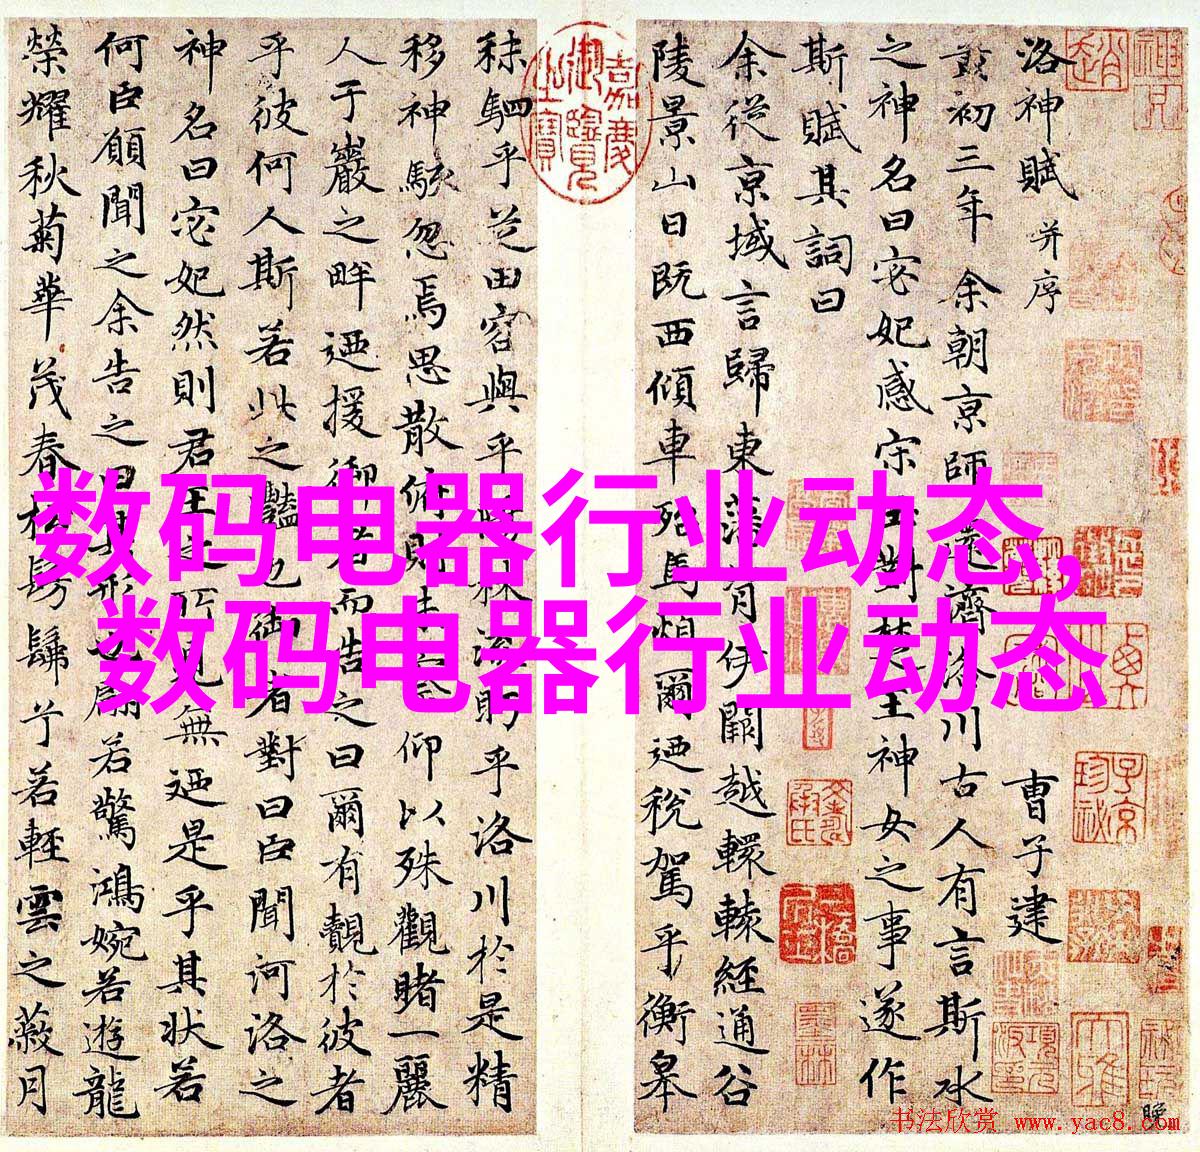 洛神賦 并序
曹子建
黃初三年余朝京師還濟洛川古人有言斯水
之神名曰宓妃感宋玉對楚王神女之事遂作
斯賦其詞曰
余從京域言歸東藩背伊闕越轘轅經通谷
陵景山日既西傾車殆馬煩爾迺稅駕乎蘅皋
秣駟乎芝田容與乎陽林流眄乎洛川於是精
移神駭忽焉思散俯則未察仰以殊觀睹一麗
人于巖之畔迺援御者而告之曰爾有覿於彼者
乎彼何人斯若此之豔也御者對曰臣聞河洛之
神名曰宓妃然則君王之所見無迺是乎其狀若
何臣願聞之余告之曰其形也翩若驚鴻婉若遊龍
榮耀秋菊華茂春松髣髴兮若輕雲之蔽月
嘉慶御覽之寶
数码电器行业动态,
数码电器行业动态
书法欣赏 www.yac8.com